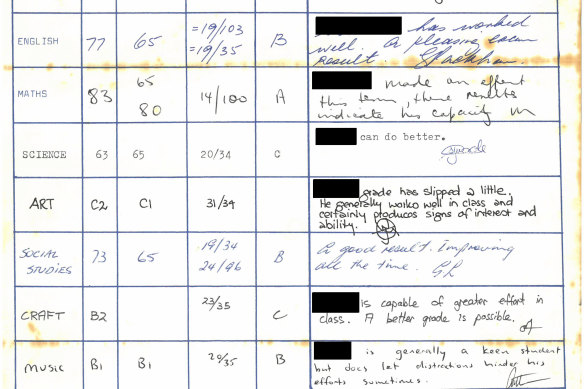 =19/103 has worked
ENGLISH 77 65 =19/35 B well. A pleasing exam
result.
65 made an effort
MATHS 83 80 14/100 A this term, these results
indicate his capacity
can do better.
SCIENCE 63 65 20/34 C
grade has slipped a little.
ART C2 C1 31/34 He generally works well in class and
certainly produces signs of interest and
ability.
SOCIAL STUDIES 73 65 19/34 24/96 B A good result. Improving
all the time. G.R
CRAFT B2 23/35 C is capable of greater effort in
class. A better grade is possible.
MUSIC B1 B1 20/35 B is generally a keen student
but does let distractions hinder his
efforts sometimes.